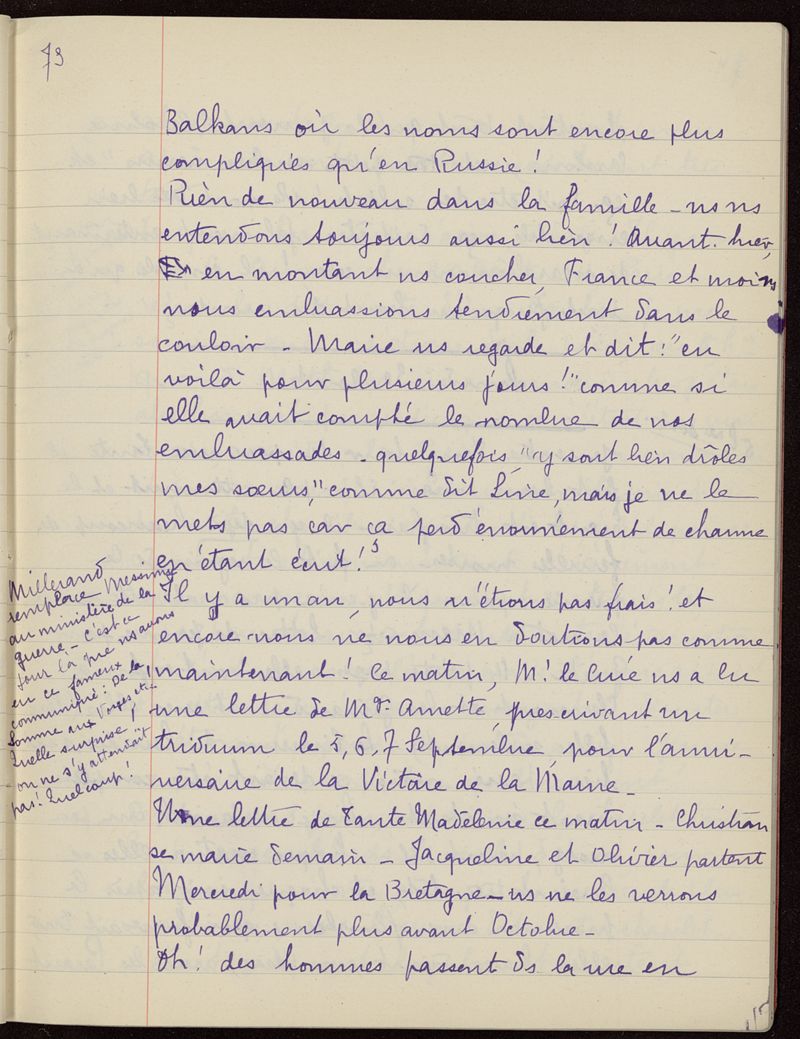 73
Balkans où les noms sont encore plus
compliqués qu'en Russie !
Rien de nouveau dans la famille - ns ns
entendons toujours aussi bien ! Avant-hier,
en montant ns coucher, France et moi
nous embrassions tendrement dans le
couloir - Marie ns regarde et dit : "en
voilà pour plusieurs jours !" comme si
elle avait compté le nombre de nos
embrassades - quelquefois, "y sont bien drôles
mes sœurs," comme dit Livie, mais je ne le
mets pas car ça perd énormément de charme
en étant écrit !
Il y a un an, nous n'étions pas frais ! et
encore nous ne nous en doutions pas comme
maintenant ! Ce matin, M. le Curé ns a lu
une lettre de Mgr Amette, prescrivant un
triduum le 5, 6, 7 Septembre, pour l'anni-
versaire de la Victoire de la Marne -
Une lettre de Tante Madeleine ce matin - Christian
se marie demain - Jacqueline et Olivier partent
Mercredi pour la Bretagne - ns ne les verrons
probablement plus avant Octobre -
Oh ! des hommes passent ds la rue en
Millerand
remplace Messimy
au ministère de la
guerre - c'est ce
jour là que ns avons
eu ce fameux
communiqué : De la
Somme aux Vosges etc.
Quelle surprise !
on ne s'y attendait
pas ! Quel coup !